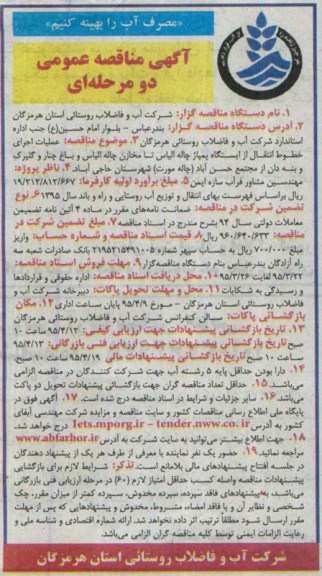 «مصرف آب را بهینه کنیم»
آگهی مناقصه عمومی
دو مرحله‌ای
۱. نام دستگاه مناقصه گزار: شرکت آب و فاضلاب روستائی استان هرمزگان
۲. آدرس دستگاه مناقصه گزار: بندرعباس – بلوار امام حسین(ع) جنب اداره
استاندارد شرکت آب و فاضلاب روستائی هرمزگان ۳. موضوع مناقصه: عملیات اجرای
خطوط انتقال از ایستگاه پمپاژ چاله الیاس تا مخازن چاله الیاس و باغ چنار و گلیرک
و پنبه دان از مجتمع حسن آباد (چاله مورت) شهرستان حاجی آباد. ۴. ناظر پروژه:
مهندسین مشاور فرآب سازه ایمن ۵. مبلغ برآورد اولیه کارفرما: ۱۹/۲۱۲/۸۱۲/۶۶۷
ریال براساس فهرست بهای انتقال و توزیع آب روستایی و راه و باند سال ۱۳۹۵ ۶. نوع
تضمین شرکت در مناقصه: ضمانت نامه‌های مقرر در ماده ۴ آئین نامه تضمین
معاملات دولتی سال ۹۴ بشرح مندرج در اسناد مناقصه ۷. مبلغ تضمین شرکت در
مناقصه: ۹۶۰/۶۴۰/۶۳۳ ریال ۸. قیمت اسناد مناقصه و شماره حساب: واریز
مبلغ ۷۰۰/۰۰۰ ریال به حساب سپهر شماره ۲۱۹۵۲۱۵۴۹۱۰۰۵ بانک صادرات شعبه سه
راه آزادگان بندرعباس بنام دستگاه مناقصه گزار ۹. مهلت فروش اسناد مناقصه:
۹۵/۳/۲۲ لغایت ۹۵/۳/۲۶ ۱۰. محل دریافت اسناد مناقصه: اداره حقوقی و قراردادها
و رسیدگی به شکایات ۱۱. محل و مهلت تحویل پاکات: دبیرخانه شرکت آب و
فاضلاب روستائی استان هرمزگان – مورخ ۹۵/۴/۹ پایان ساعت اداری ۱۲. مکان
بازگشائی پاکات: سالن کنفرانس شرکت آب و فاضلاب روستائی استان هرمزگان
۱۳. تاریخ بازگشائی پیشنهادات جهت ارزیابی کیفی: ۹۵/۴/۱۲ ساعت ۱۰
صبح تاریخ بازگشائی پیشنهادات جهت ارزیابی فنی بازرگانی: ۹۵/۴/۱۳
ساعت ۱۰ صبح تاریخ بازگشائی پیشنهادات مالی ۹۵/۴/۱۹ ساعت ۱۰ صبح.
۱۴. دارا بودن حداقل پایه ۵ رشته آب جهت شرکت کنندگان در مناقصه الزامی
می‌باشد. ۱۵. حداقل تعداد مناقصه گران جهت بازگشائی پیشنهادات تحویل دو پاکت
می‌باشد. ۱۶. سایر جزئیات و شرایط در اسناد مناقصه درج شده است. ۱۷. آگهی فوق در
پایگاه ملی اطلاع رسانی مناقصات کشور و سایت مناقصه و مزایده شرکت مهندسی آبفای
کشور به آدرس Iets.mporg.ir – tender.nww.co.ir درج خواهد شد.
۱۸. جهت اطلاع بیشتر می‌توانید به سایت شرکت به آدرس www.abfarhor.ir
مراجعه نمائید. ۱۹. حضور یک نفر نماینده با معرفی از طرف هر یک از پیشنهاد دهندگان
در جلسه افتتاح پیشنهادهای مالی بلامانع است. تذکر: شرایط لازم برای بازگشایی
پیشنهادات مناقصه واصله کسب حداقل امتیاز لازم (۶۰) در مرحله ارزیابی فنی بازرگانی
می‌باشد، به پیشنهادهای فاقد سپرده، سپرده مخدوش، سپرده کمتر از میزان مقرر، چک
شخصی و نظایر آن و یا فاقد امضاء، مشروط، مخدوش و پیشنهادهایی که پس از مهلت
مقرر ارسال شود مطلقاً ترتیب اثر داده نخواهد شد. ارائه شماره اقتصادی و شناسه ملی و
رعایت الزامات ایمنی توسط کلیه مناقصه گران الزامی می‌باشد.
شرکت آب و فاضلاب روستائی استان هرمزگان